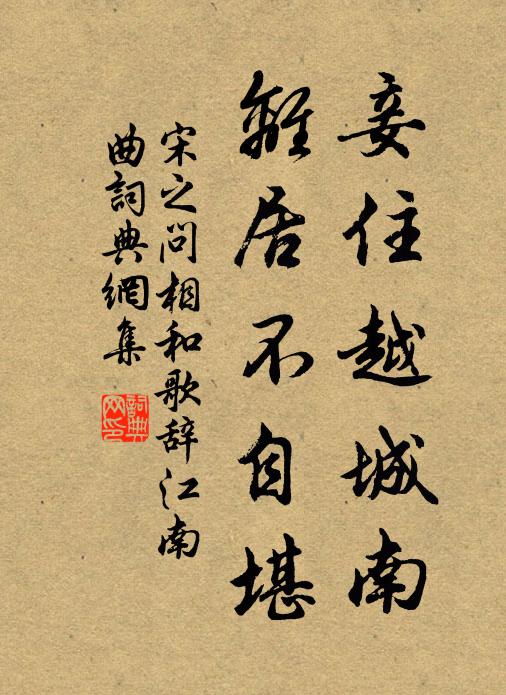 妾住越城南
離居不自堪
宋之问相和歌辞江南
曲詞典網集
詞典
网印